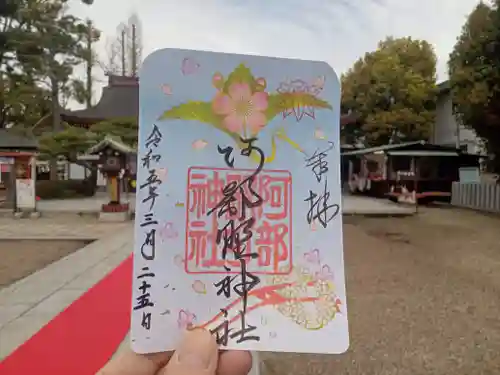 奉拝
阿部野神社
阿部野神社
令和五年三月二十五日